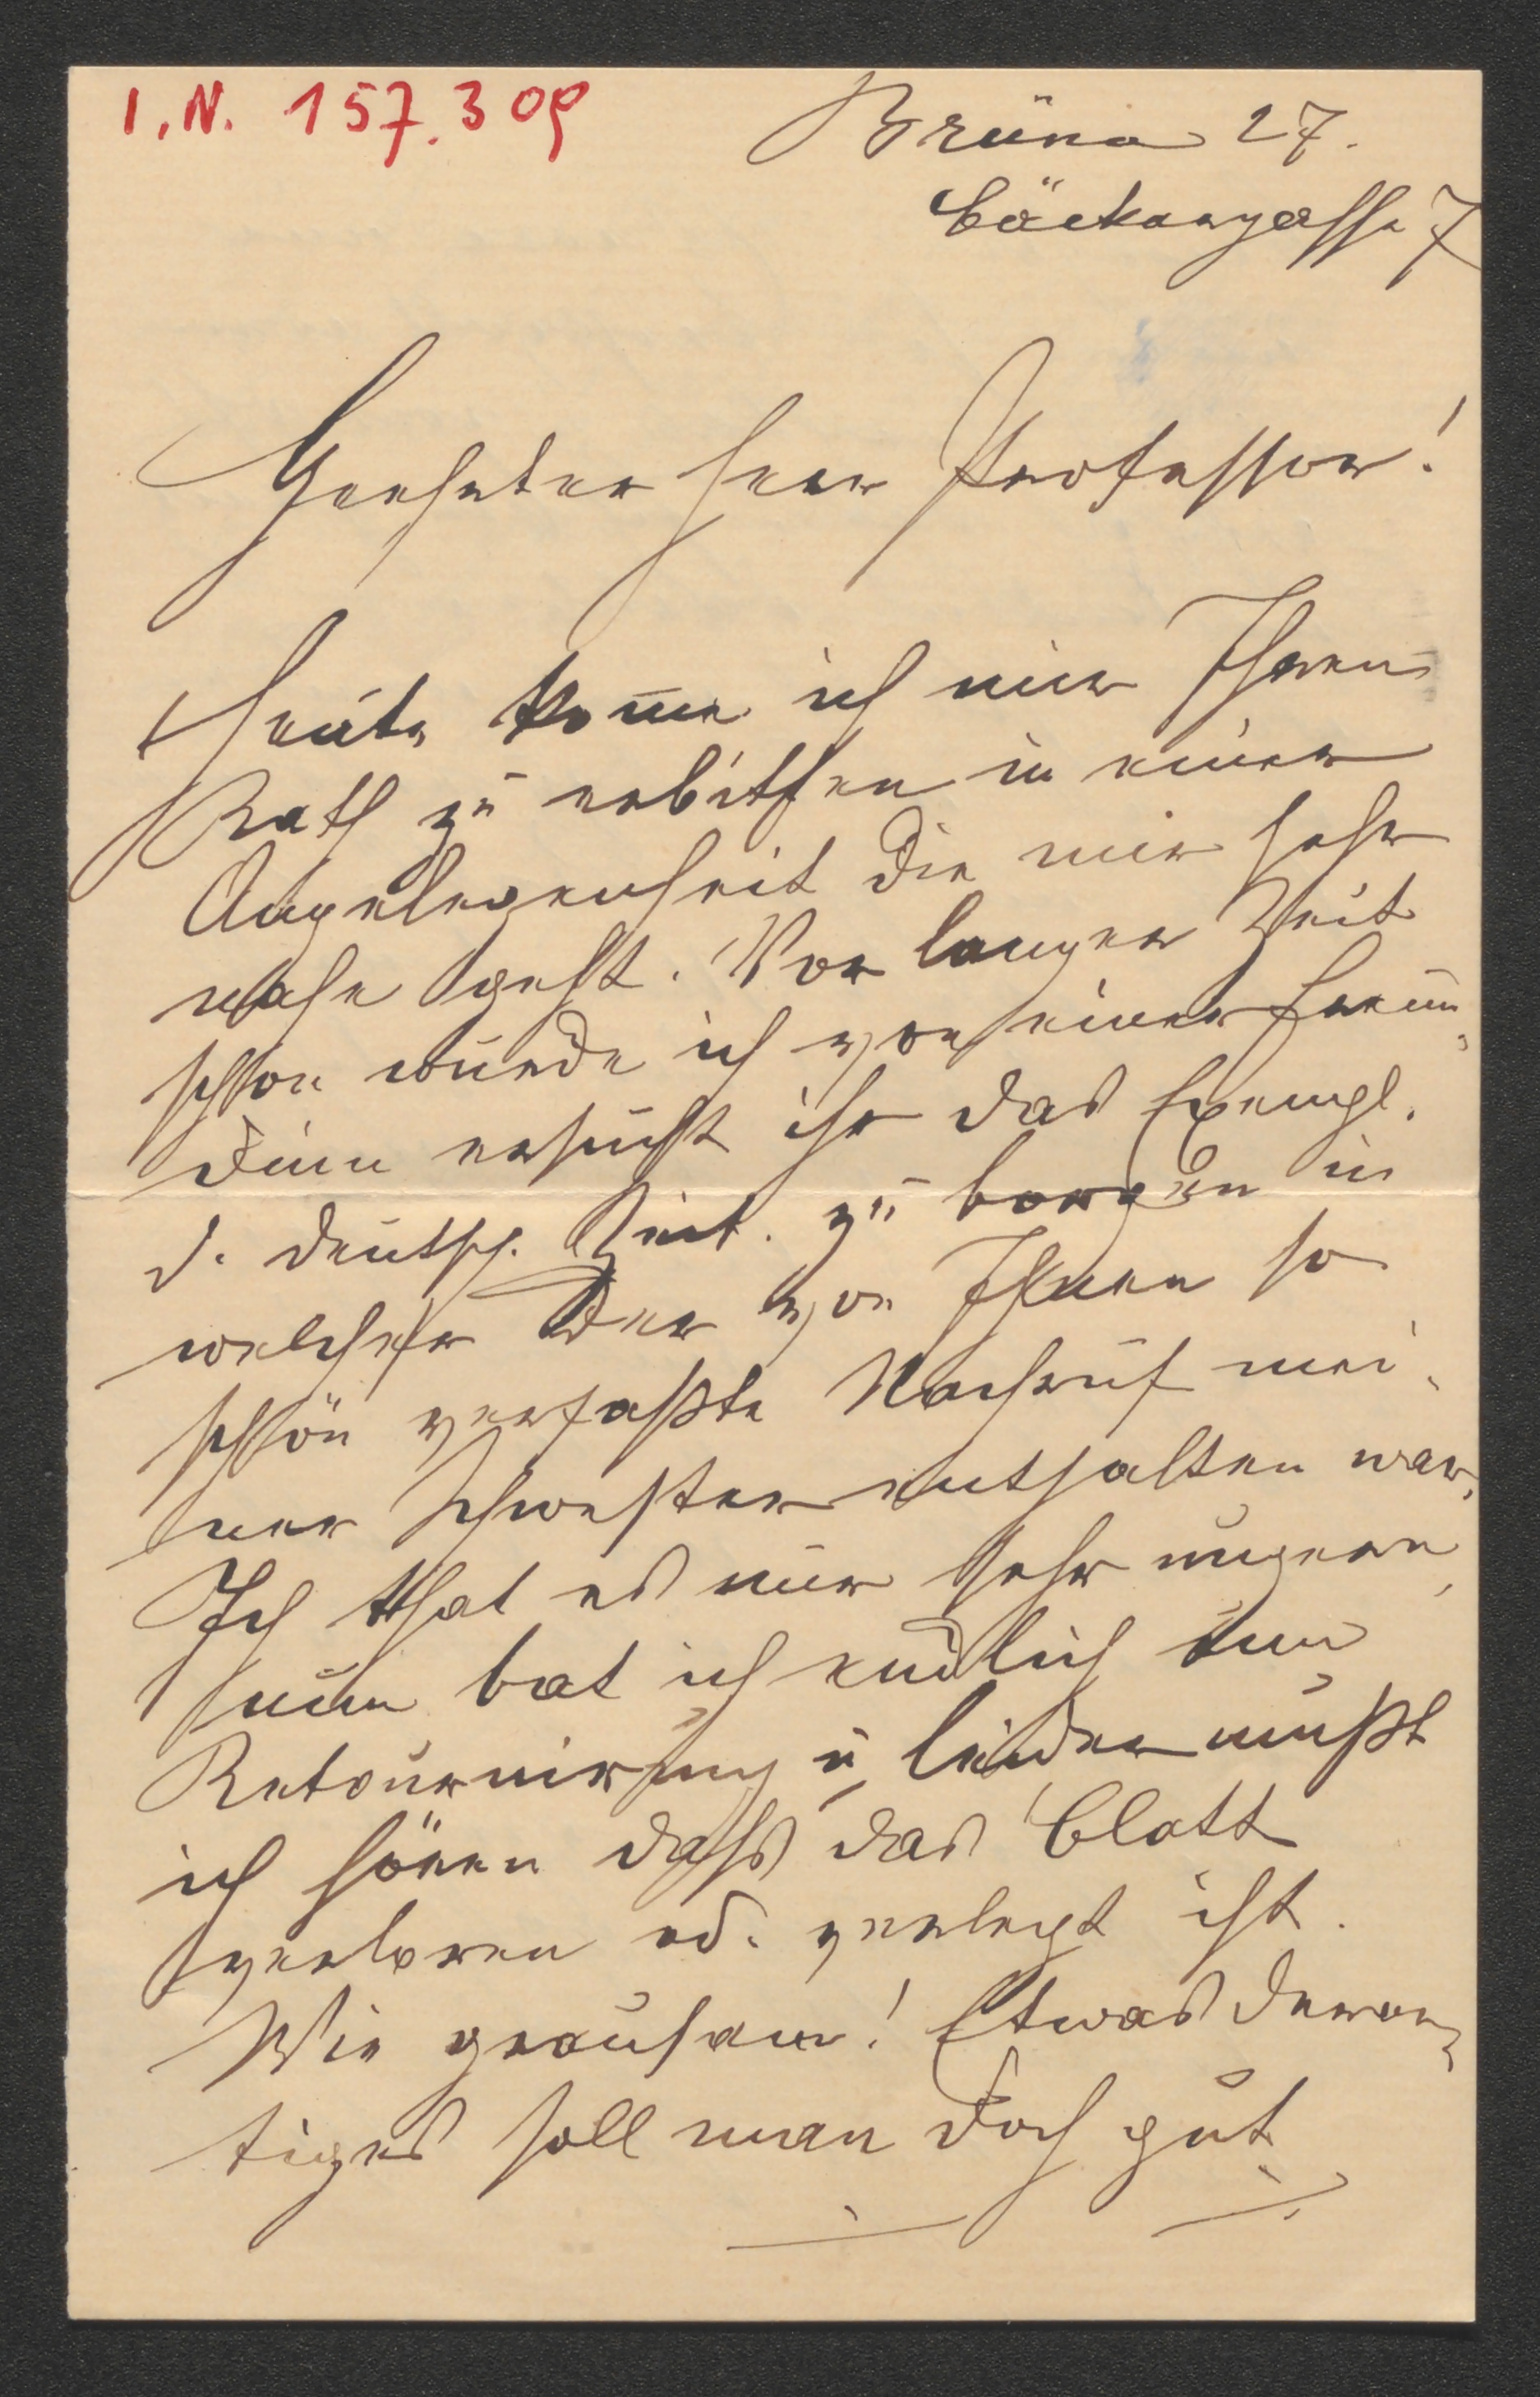 I.N. 157.309
Brünn 27.
Bäckergasse 7
Geehrter Herr Professor!
Heute kom̄e ich mir Ihren
Rath zu erbitten in einer
Angelegenheit die mir sehr
nahe geht. Vor langer Zeit
schon wurde ich von einer Freun-
din ersucht ihr das Exempl.
d. deutsch. Zeit. zu borgen in
welcher der von Ihnen so
schön verfaßte Nachruf mei-
ner Schwester enthalten war.
Ich that es nur sehr ungern,
nun bat ich endlich um
Retournirung u. leider mußt
ich hören dass das Blatt
verloren od. verlegt ist.
Wie grausam! Etwas derar-
tiges soll man doch gut